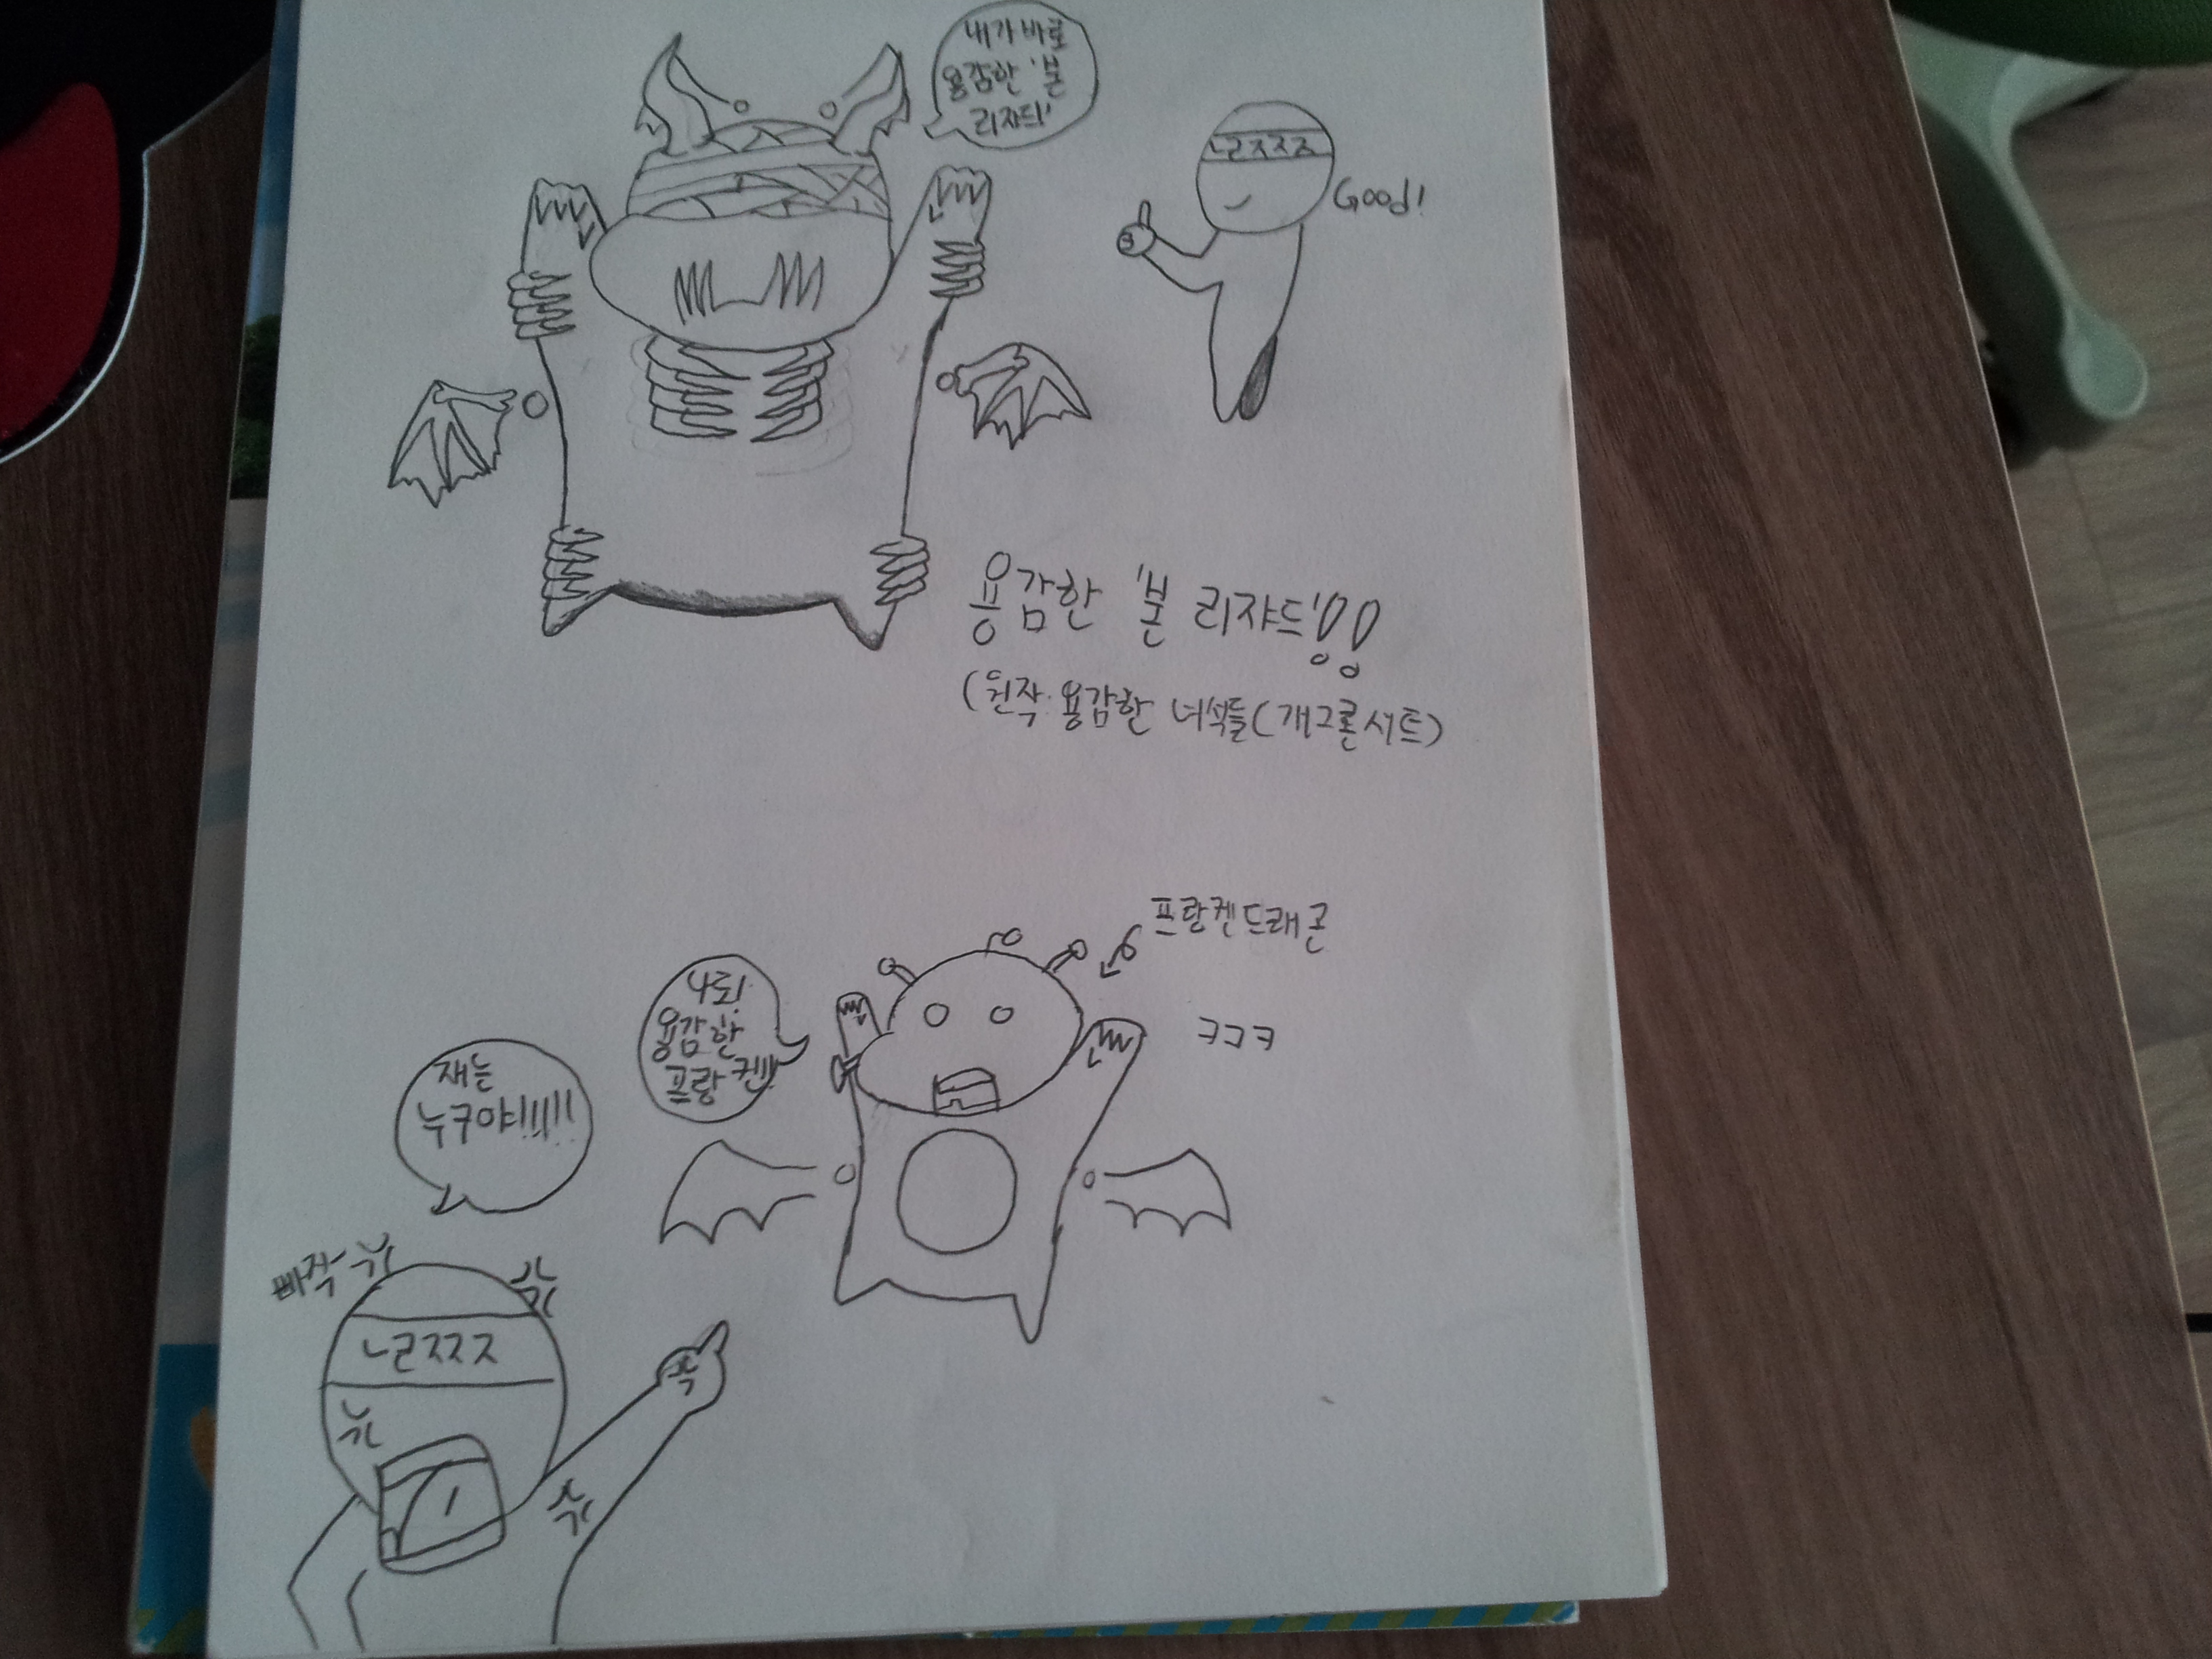 내가 바로
용감한 '본
리쟈드'
ㄴㄹㅈㅈㅈ
Good!
용감한 '본 리쟈드'!!
(원작:용감한 녀석들(개그콘서트)
프랑켄드래곤
나도!
용감한
프랑켄!!
ㅋㅋㅋ
쟤는
누구야!!!!!!
빠직
ㄴㄹㅈㅈㅈ